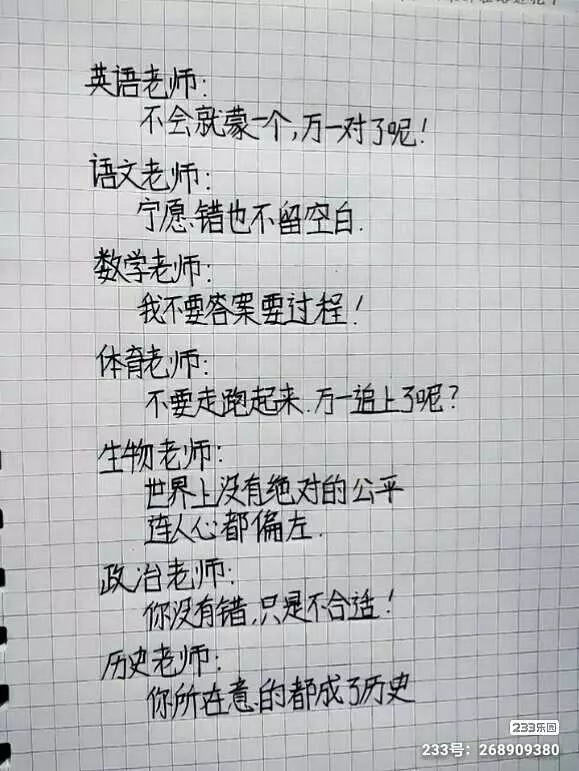 英语老师:
不会就蒙一个,万一对了呢!
语文老师:
宁愿错也不留空白.
数学老师:
我不要答案要过程!
体育老师:
不要走跑起来.万一追上了呢?
生物老师:
世界上没有绝对的公平
连人心都偏左.
政治老师:
你没有错,只是不合适!
历史老师:
你所在意的都成了历史
233乐园
233号:268909380